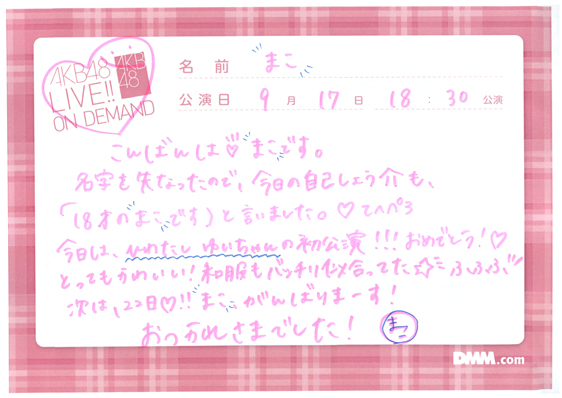 AKB48
LIVE!!
ON DEMAND
AKB
48
名前 まこ
公演日 9月17日 18:30公演
こんばんは♡まこです。
名字を失なったので、今日の自己しょう介も、
「(18才のまこです)と言いました。♡てへペろ
今日は、ひわたし ゆいちゃんの初公演!!!おめでとう!♡
とってもかわいい!和服もバッチリ似合ってた☆ミふふふ
次は、22日♡!!まこ がんばりまーす!
おつかれさまでした!
まこ
DMM.com